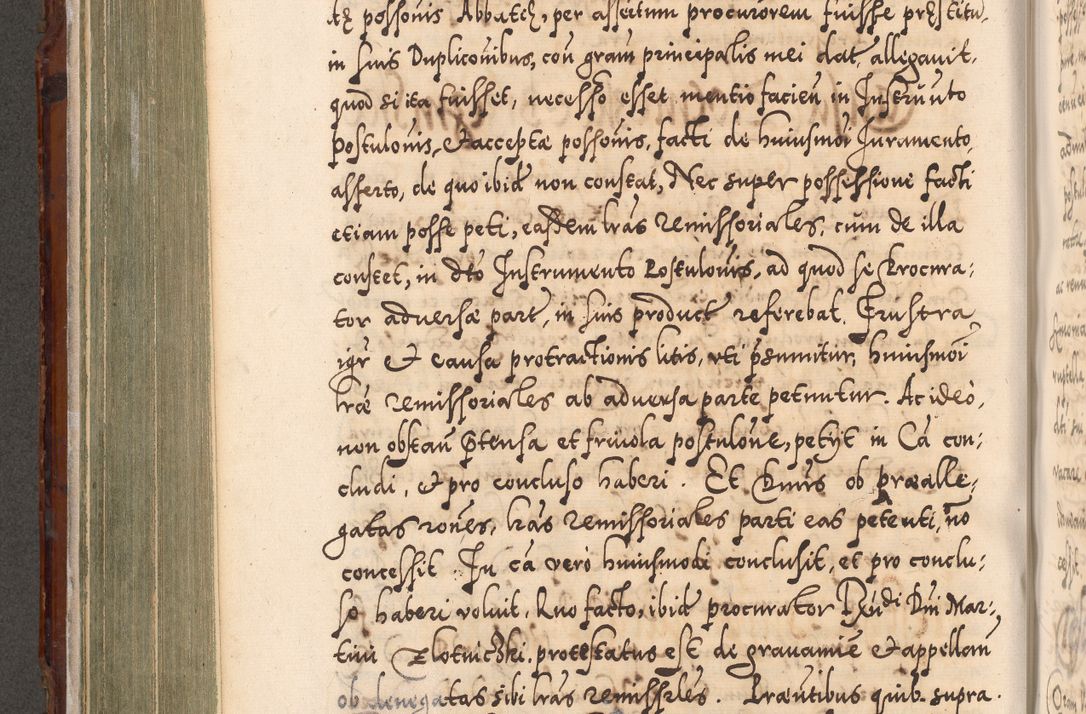 tę possonis Abbatię, per assertum procurorem fuisse pręstitu,
in suis Duplicoibus, cou gram principalis mei dat, allegavit,
quod si ita fuisset, necesso esset mentio facien in Instrunto
Postulonis, et acceptæ possonis, facti de huiusmoi Juramento,
asserto, de quo ibid non constat, Nec super possessione facti
etiam posse peti, easdem lras remissoriales, cum de illa
constet, in dto Instrumento Postulonis, ad quod se Procura:
tor adversæ part, in suis product referebat. Frustra
igr et causa protractionis litis, uti psumitur, huiusmoi
lræ remissoriales ab adversa parte petuntur. Ac ideò,
non obstan ptensa et frivola postulone, petijt in Ca con:
cludi, et pro concluso haberi. Et Rmus ob præalle,
gatas rones, lras remissoriales parti eas petenti, no
concessit. In ca verò huiusmodi conclusit, et pro conclu:
so haberi voluit. Quo facto, ibid procurator Rudi Dni Mar:
tini Zlotnicski protestatus est de gravamine et appellan
ob denegatas sibi lras remissrles. Præntibus quib. supra.